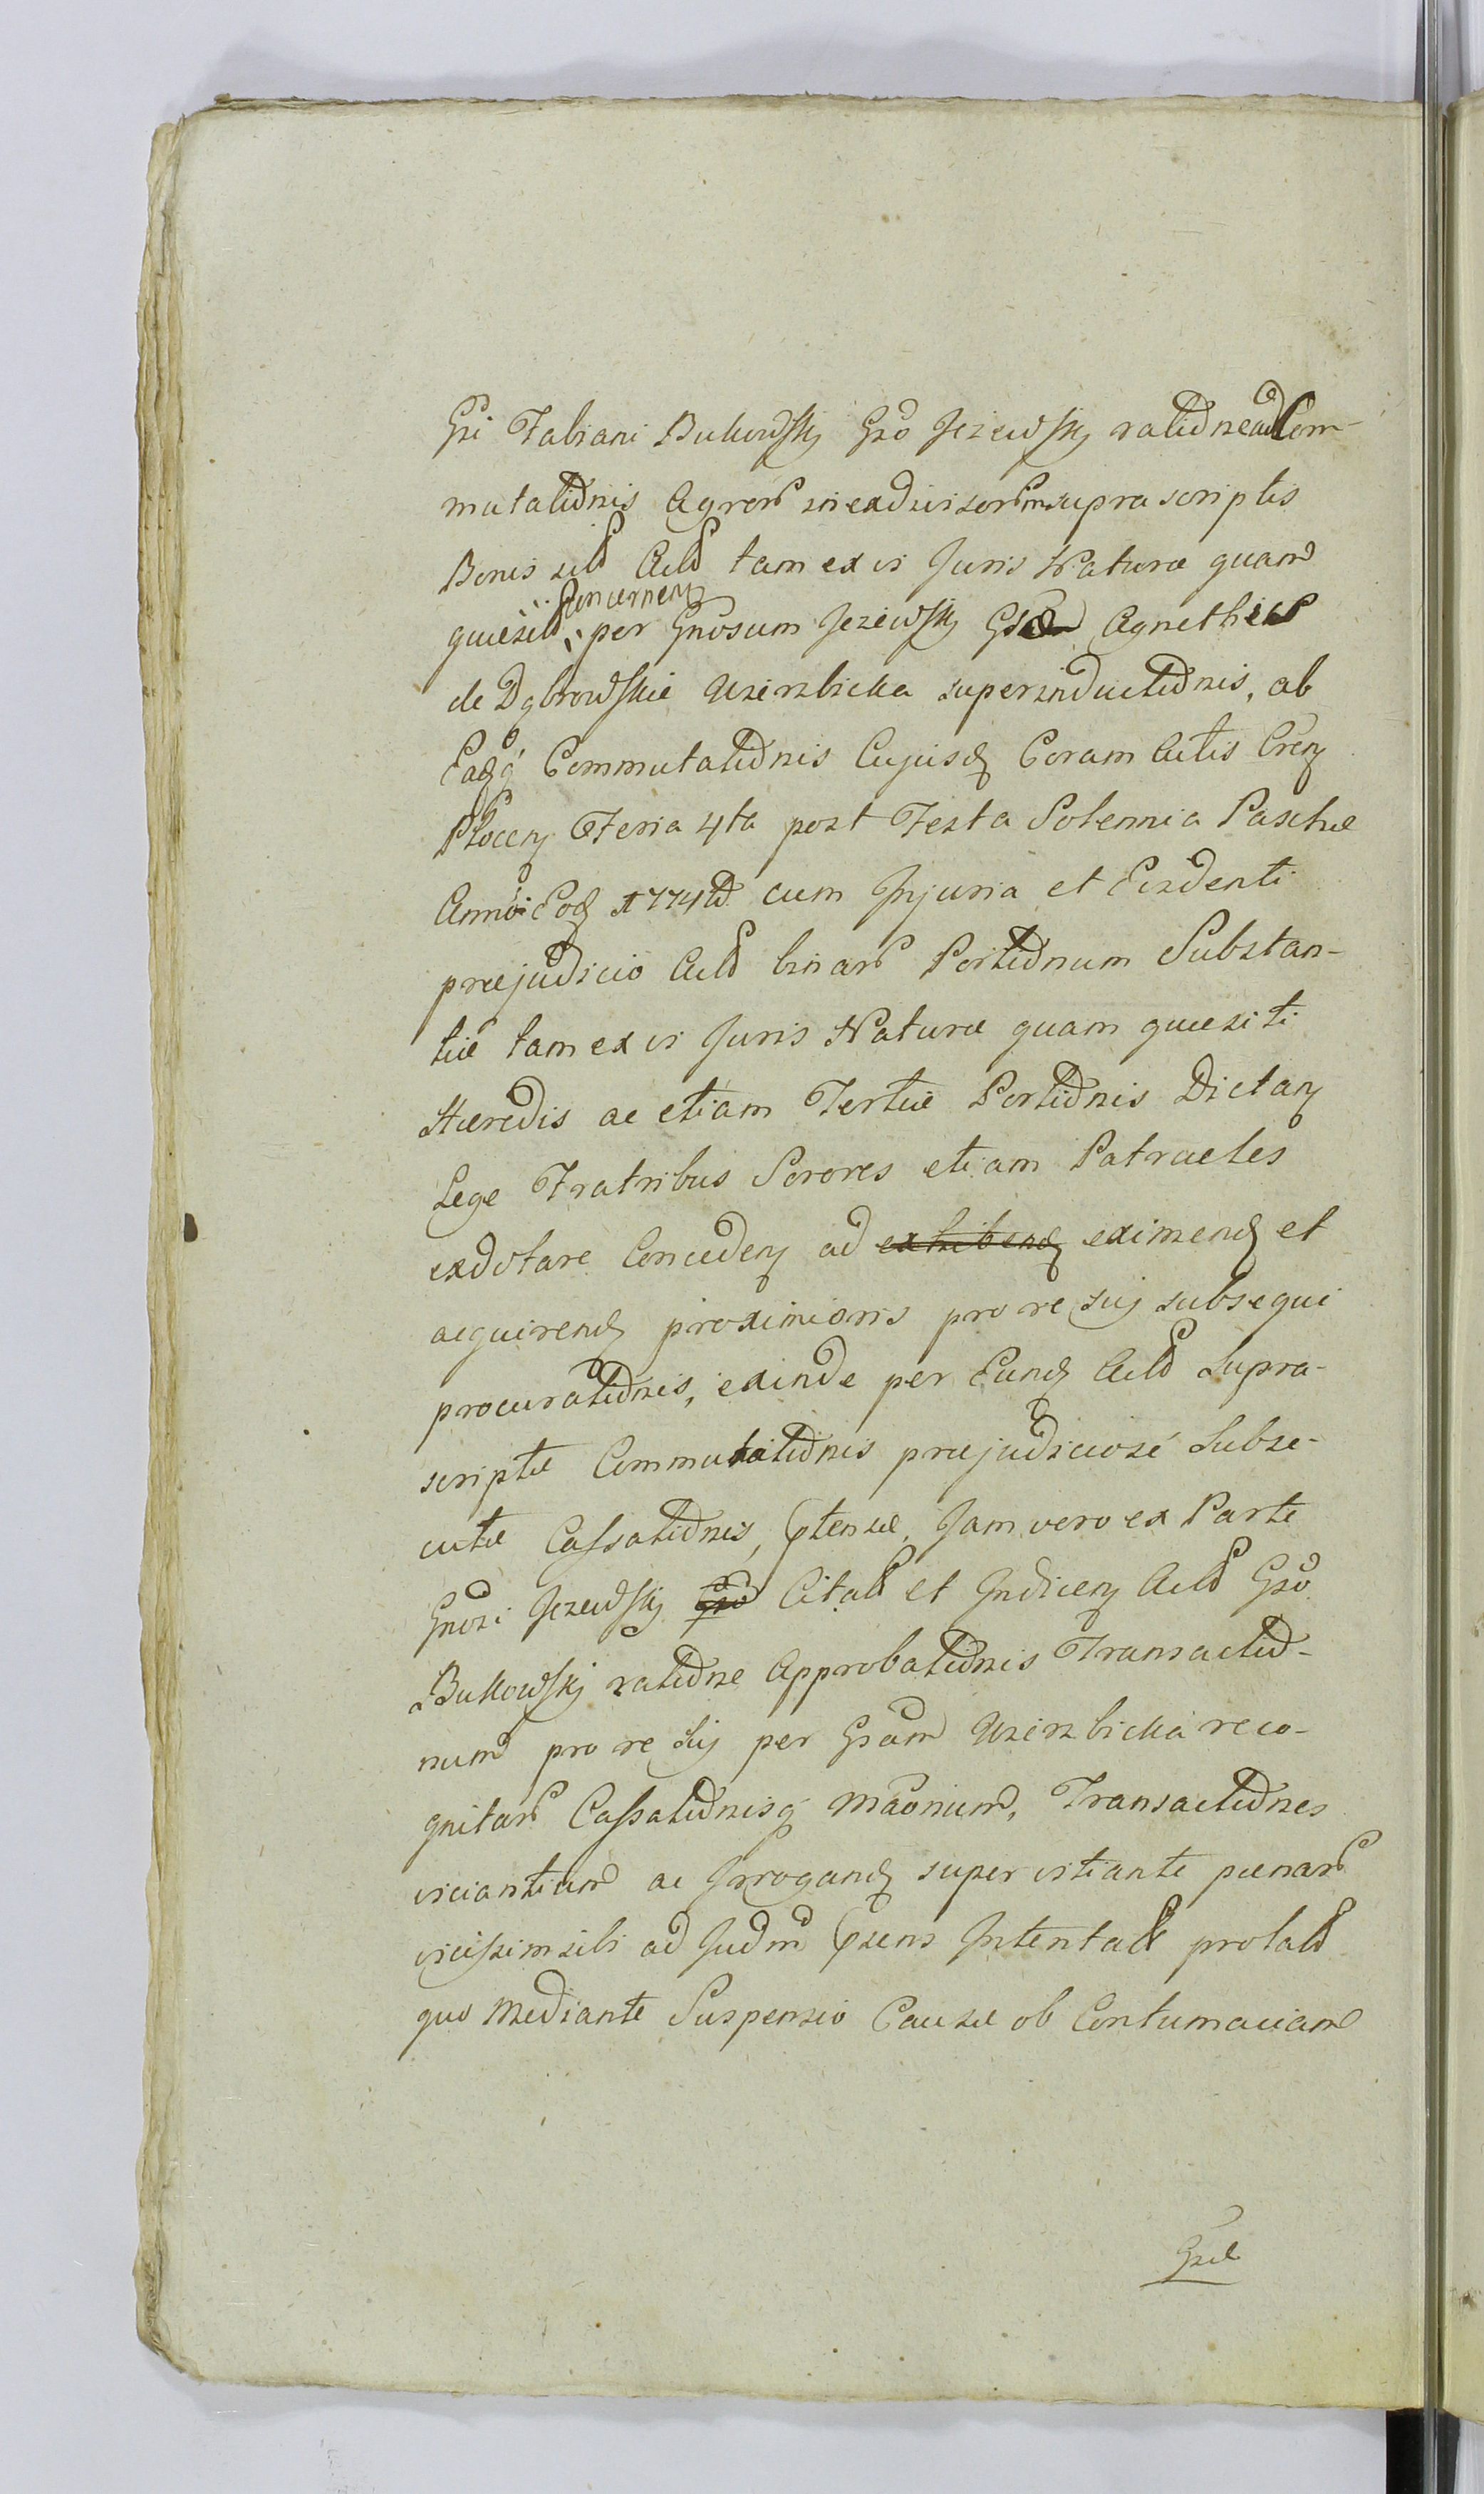 Gsi Fabiani Bukowskÿ Gso Jezewskÿ ratione ad Com-
mutationis Agror inexdivisor in supra scriptis
Bonis sibi Acto tam ex vi Juris Naturæ quam
quæsiti concernen per Gnosum Jezewskÿ Agnethis
de Dąbrowskie Uzierzbicka superinductionis, ab
Eadq Commutationis Cujusq Coram Actis Cren
Płocen Feria 4ta post Festa Solennia Paschæ
Anni Eod 1774to cum Injuria et Evidenti
præjudicio Acto binar Portionum Substan-
tiæ tam ex vi Juris Naturæ quam quæsiti
Hæredis ac etiam Tertiæ Portionis Dictan
Lege Fratribus Sorores etiam Patrueles
exdotare Conceden ad exhibend eximend et
acquirend proximioris pro re suj subsequi
procurationis, exinde per Eund Acto Supra-
scriptæ Commutationis præjudiciosé Subse-
cutæ Cassationis, ptensæ, Jam vero ex Parte
Gnosi Jezewskÿ Gso Citati et Indicen Acto Gso
Bukowskÿ ratione Approbationis Transactio-
num pro re suj per Gsam Uzierzbicka reco-
gnitar Cassationisq Maonium, Transactiones
viciantium ac Irrogand super vitiante pænar
vicissim sibi ad Judm psens Intentati prolati
quo Mediante Suspensio Causæ ob Contumaciam
Gsæ